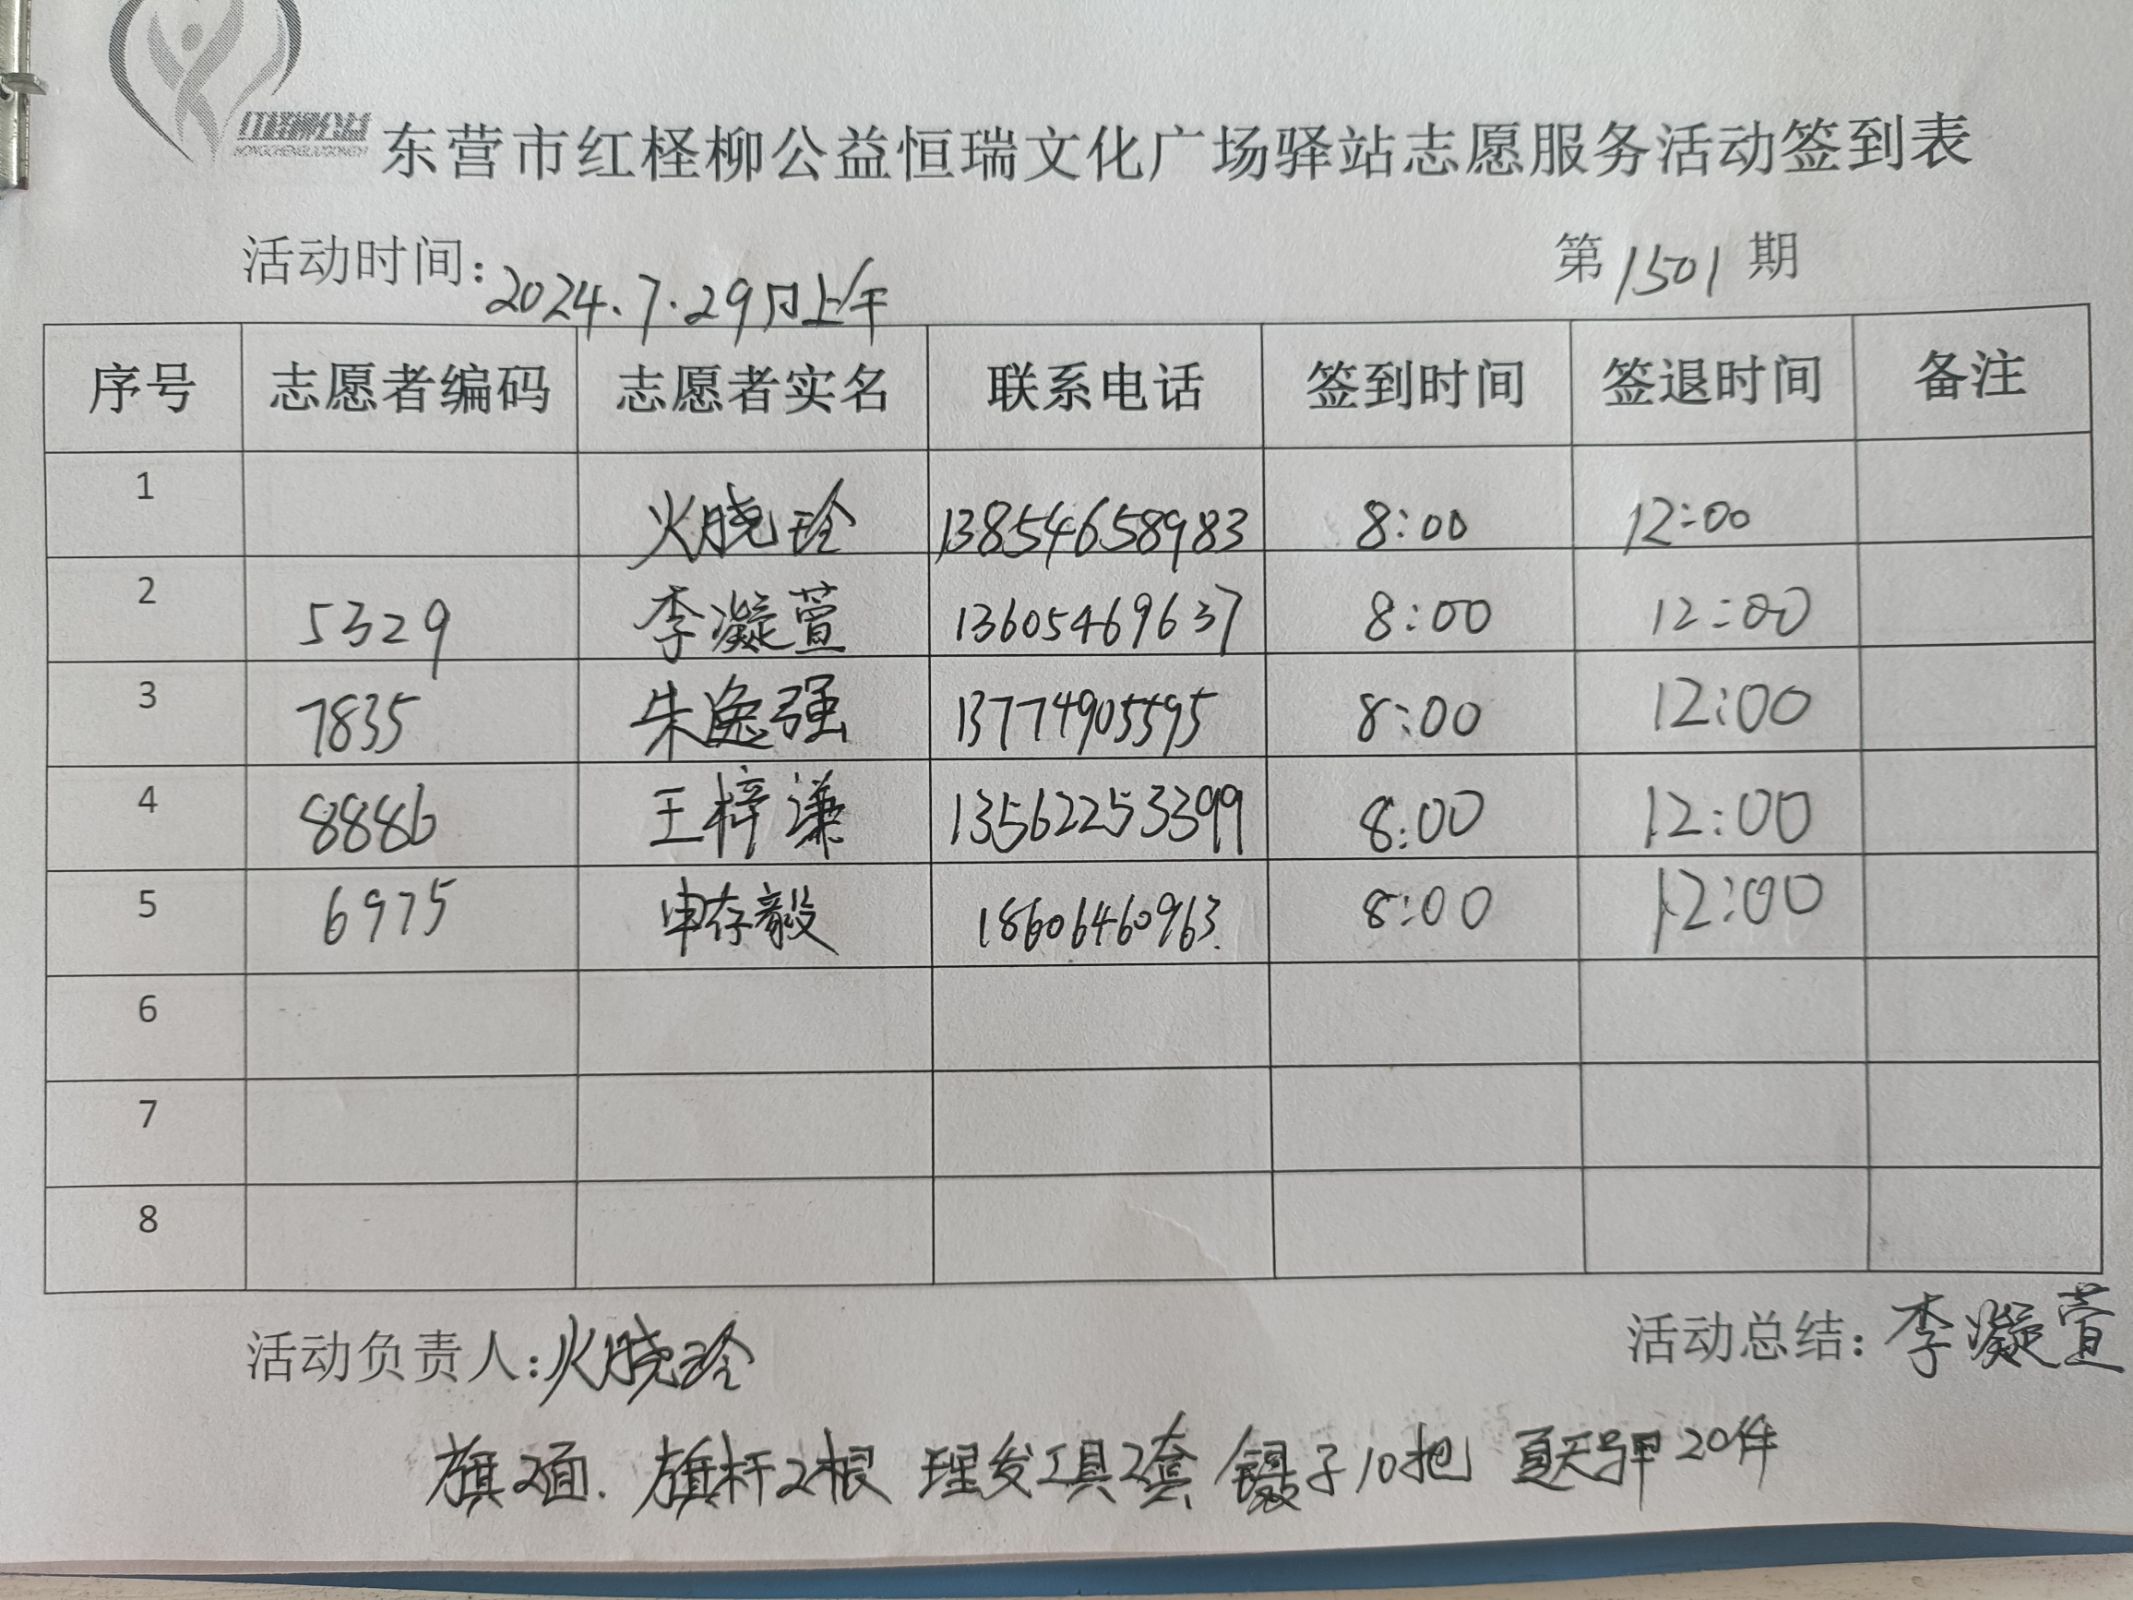 红柽柳公益
HONGCHENGLIUGONGYI
东营市红柽柳公益恒瑞文化广场驿站志愿服务活动签到表
活动时间：2024.7.29日上午 第1501期
序号 志愿者编码 志愿者实名 联系电话 签到时间 签退时间 备注
1 火晓玲 13854658983 8:00 12:00
2 5329 李凝萱 13605469637 8:00 12:00
3 7835 朱逸强 13774905595 8:00 12:00
4 8886 王梓谦 13562253399 8:00 12:00
5 6975 申存毅 18606460963. 8:00 12:00
6
7
8
活动负责人：火晓玲 活动总结：李凝萱
旗2面. 旗杆2根 理发工具2套 镊子10把 夏天马甲20件